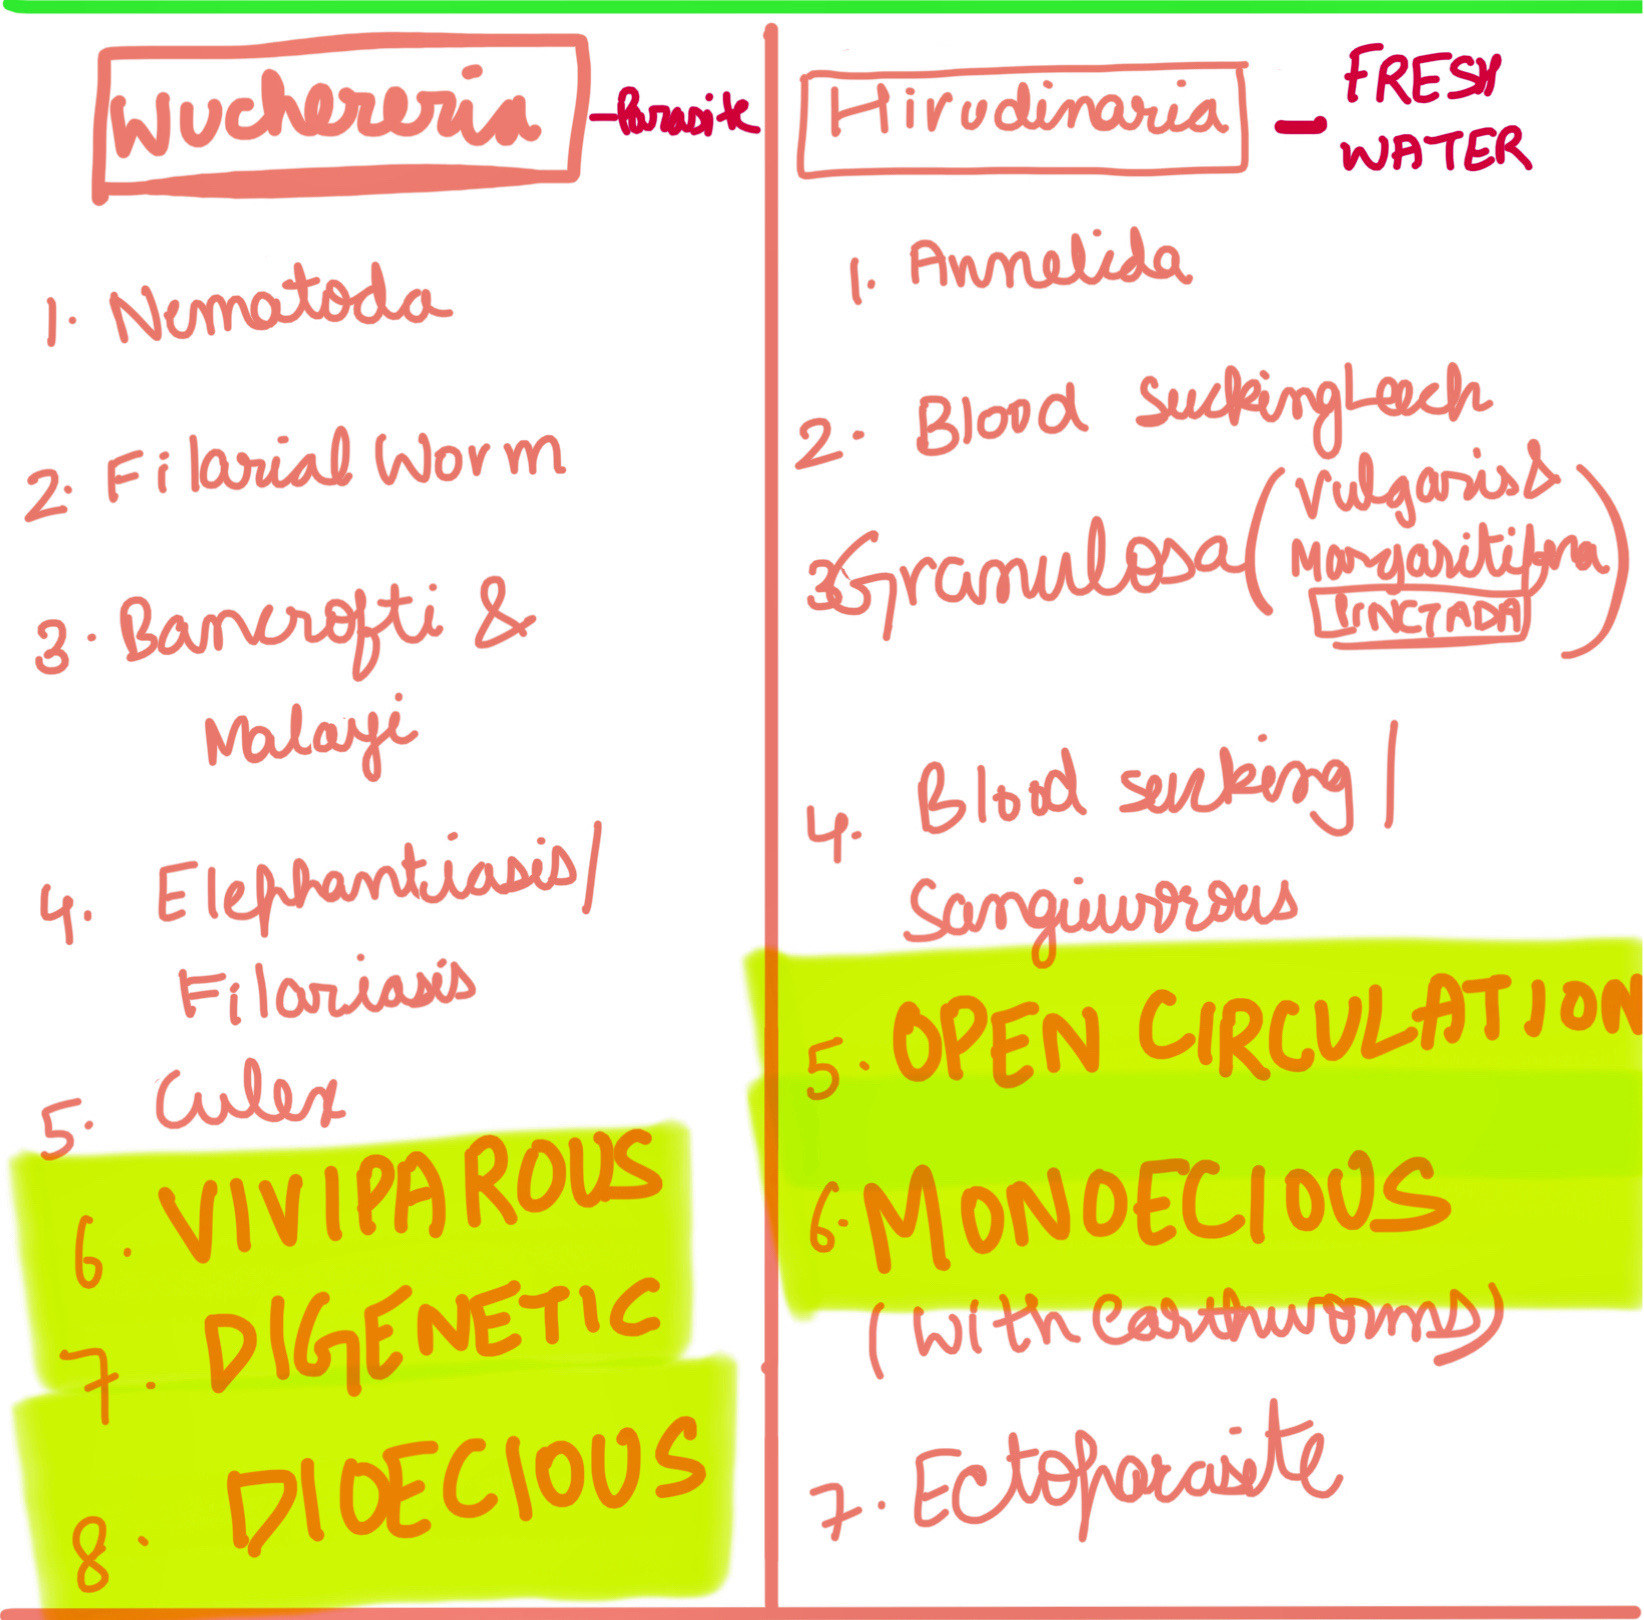 Wuchereria - Parasite
1. Nematoda
2. Filarial Worm
3. Bancrofti &
Malayi
4. Elephantiasis/
Filariasis
5. Culex
6. VIVIPAROUS
7. DIGENETIC
8. DIOECIOUS
Hirudinaria - FRESH
WATER
1. Annelida
2. Blood Sucking Leech
3 Granulosa (Vulgaris &
Margaritifera)
PINCTADA
4. Blood sucking /
Sanguivorous
5. OPEN CIRCULATION
6. MONOECIOUS
(with earthworms)
7. Ectoparasite